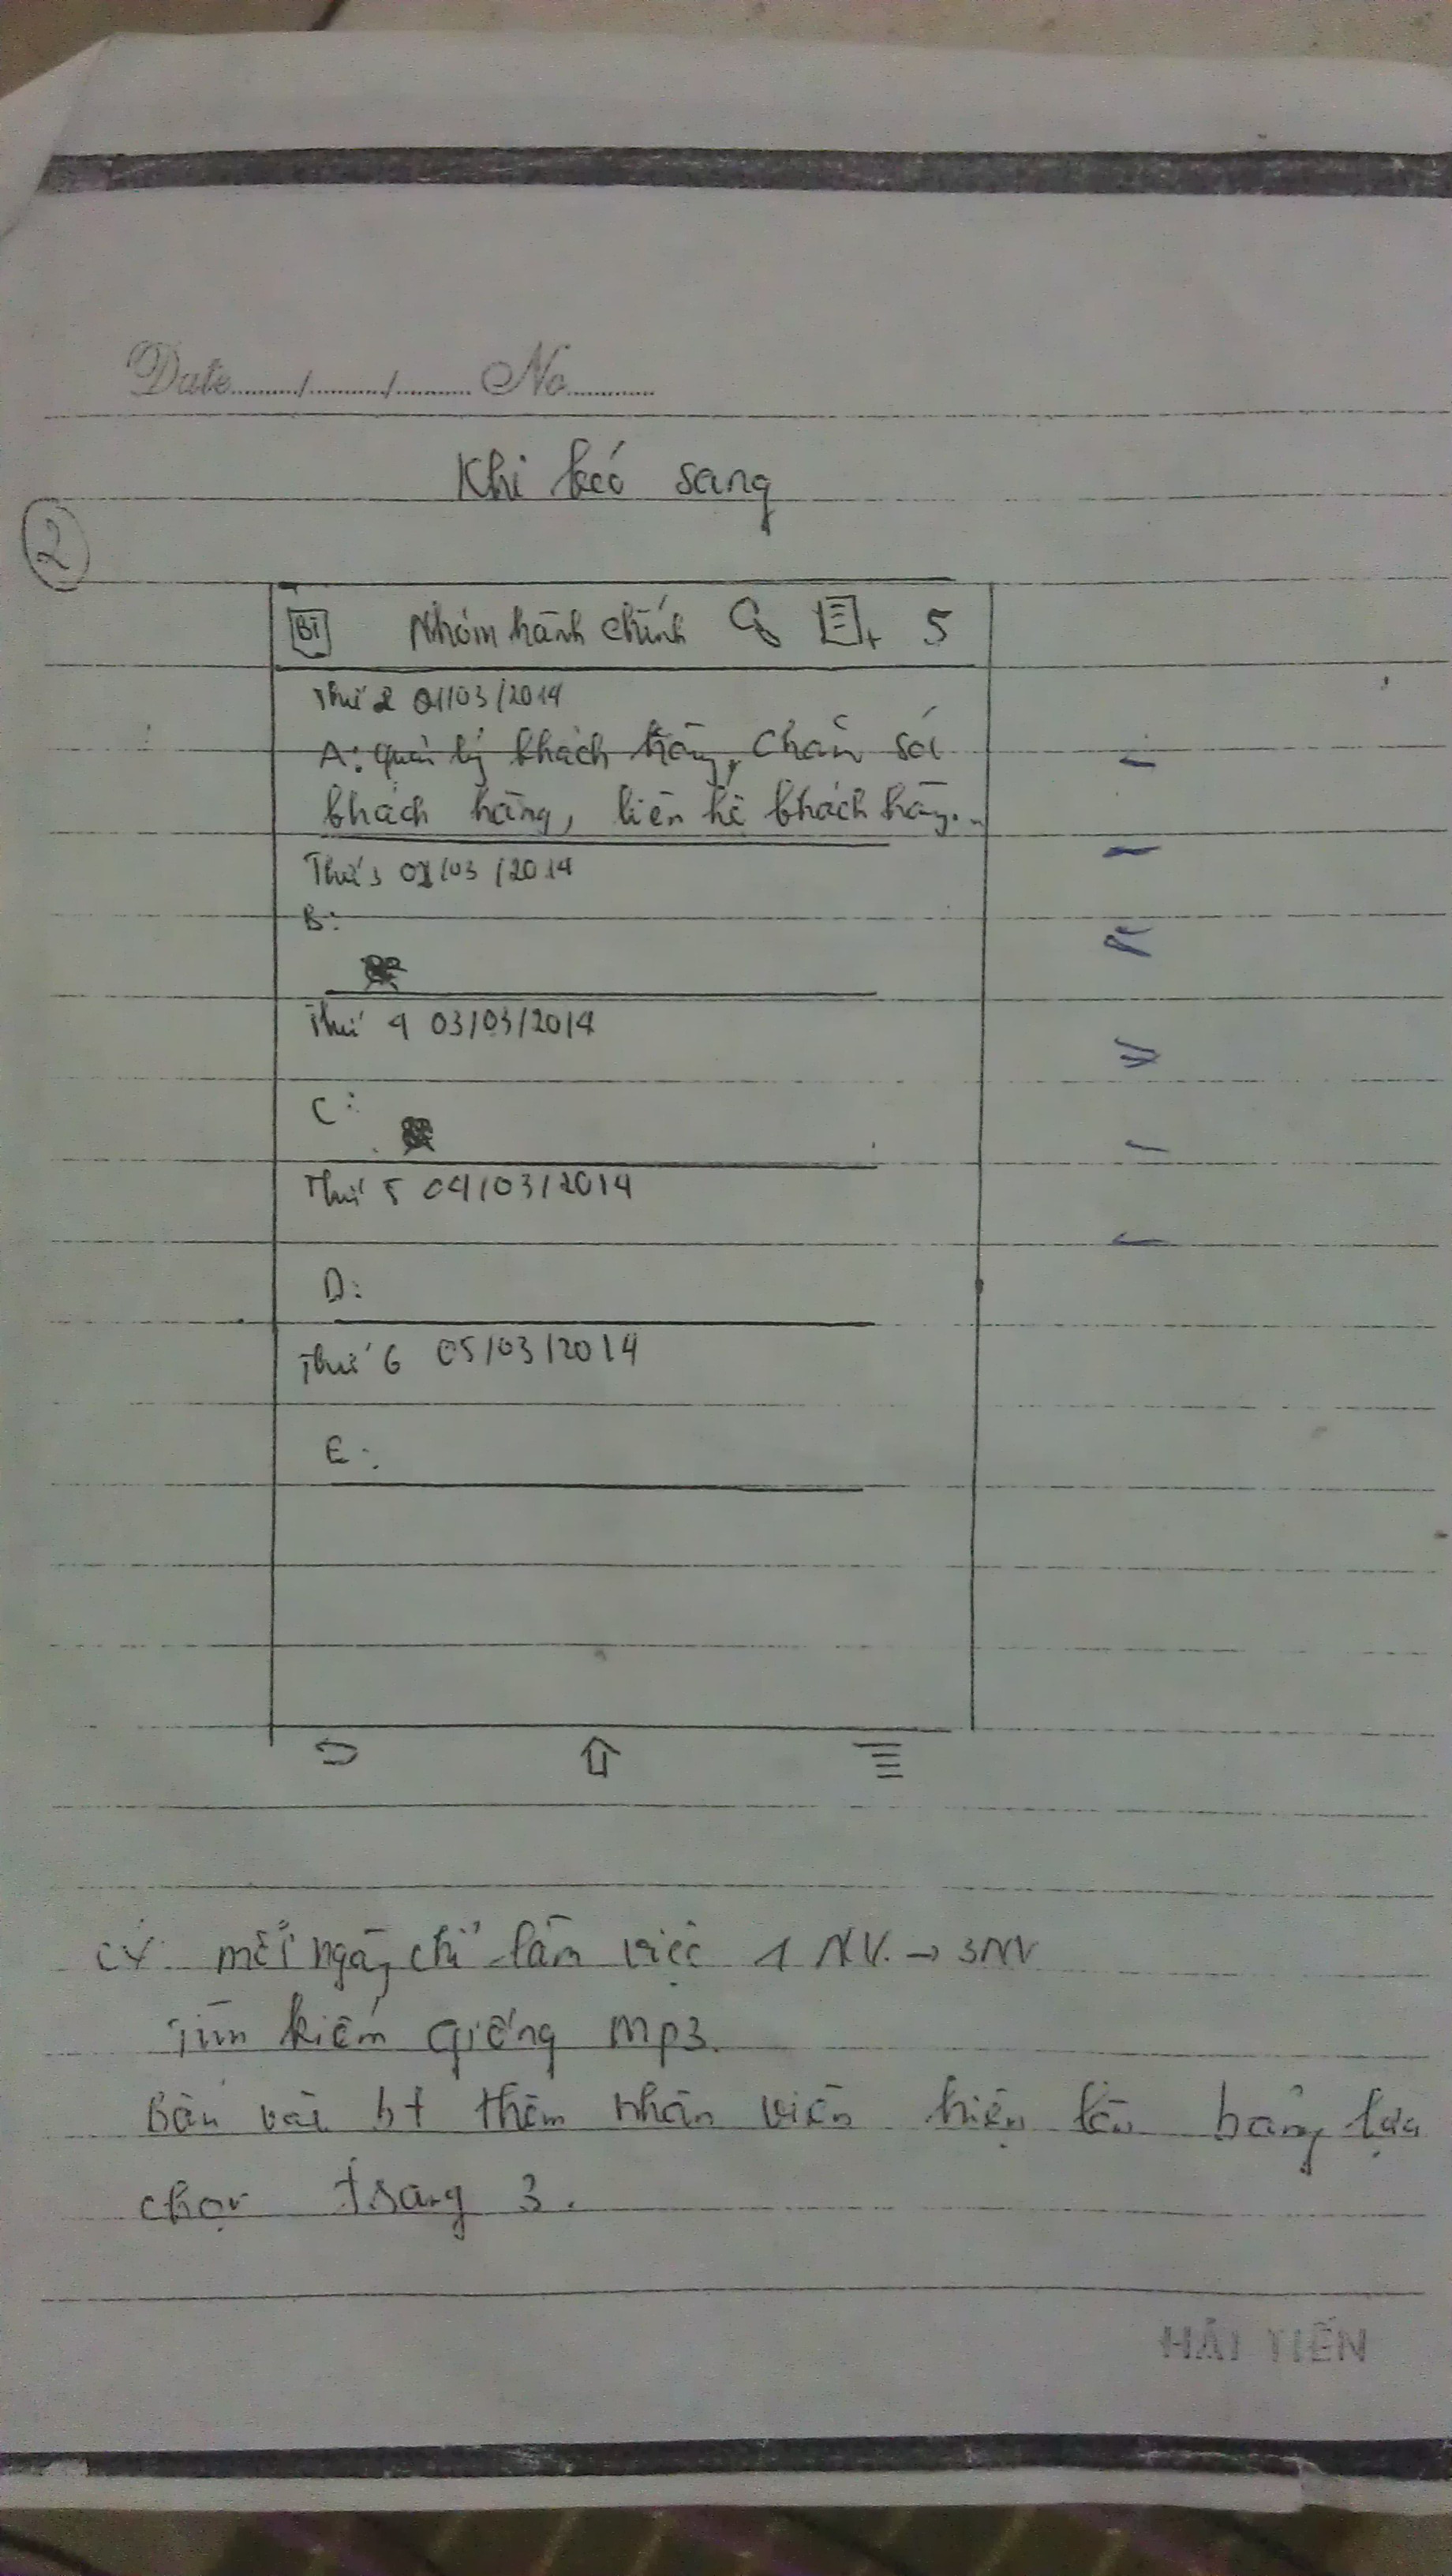 Date......../......../........ No.........
Khi kéo sang
2
BT Nhóm hành chính 5
Thứ 2 01/03/2014
A: quản lý khách hàng, chăm sóc
khách hàng, liên hệ khách hàng...
Thứ 3 02/03/2014
B:
Thứ 4 03/03/2014
C:
Thứ 5 04/03/2014
D:
Thứ 6 05/03/2014
E:
mỗi ngày chỉ làm việc 1 NV. → 3NV
Tìm kiếm giống mp3.
Bấm vài bt thêm nhân viên hiện lên bảng lựa
chọn trang 3.
HẢI TIẾN